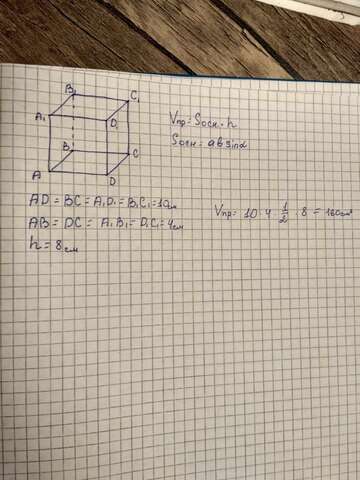 B₁
C₁
A₁
D₁
B
C
A
D
Vпр = Sосн · h
Sосн = ab sinα
AD = BC = A₁D₁ = B₁C₁ = 10см
AB = DC = A₁B₁ = D₁C₁ = 4см
h = 8см
Vпр = 10 · 4 · 1/2 · 8 = 160см³